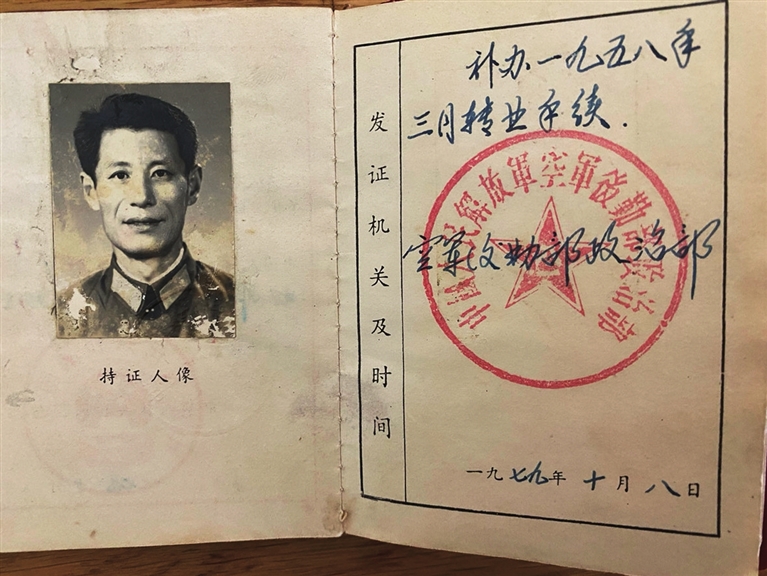 持证人像
发证机关及时间
补办一九五八年
三月转业手续.
中国人民解放軍空軍後勤部政治部
空军后勤部政治部
一九七九年十月八日